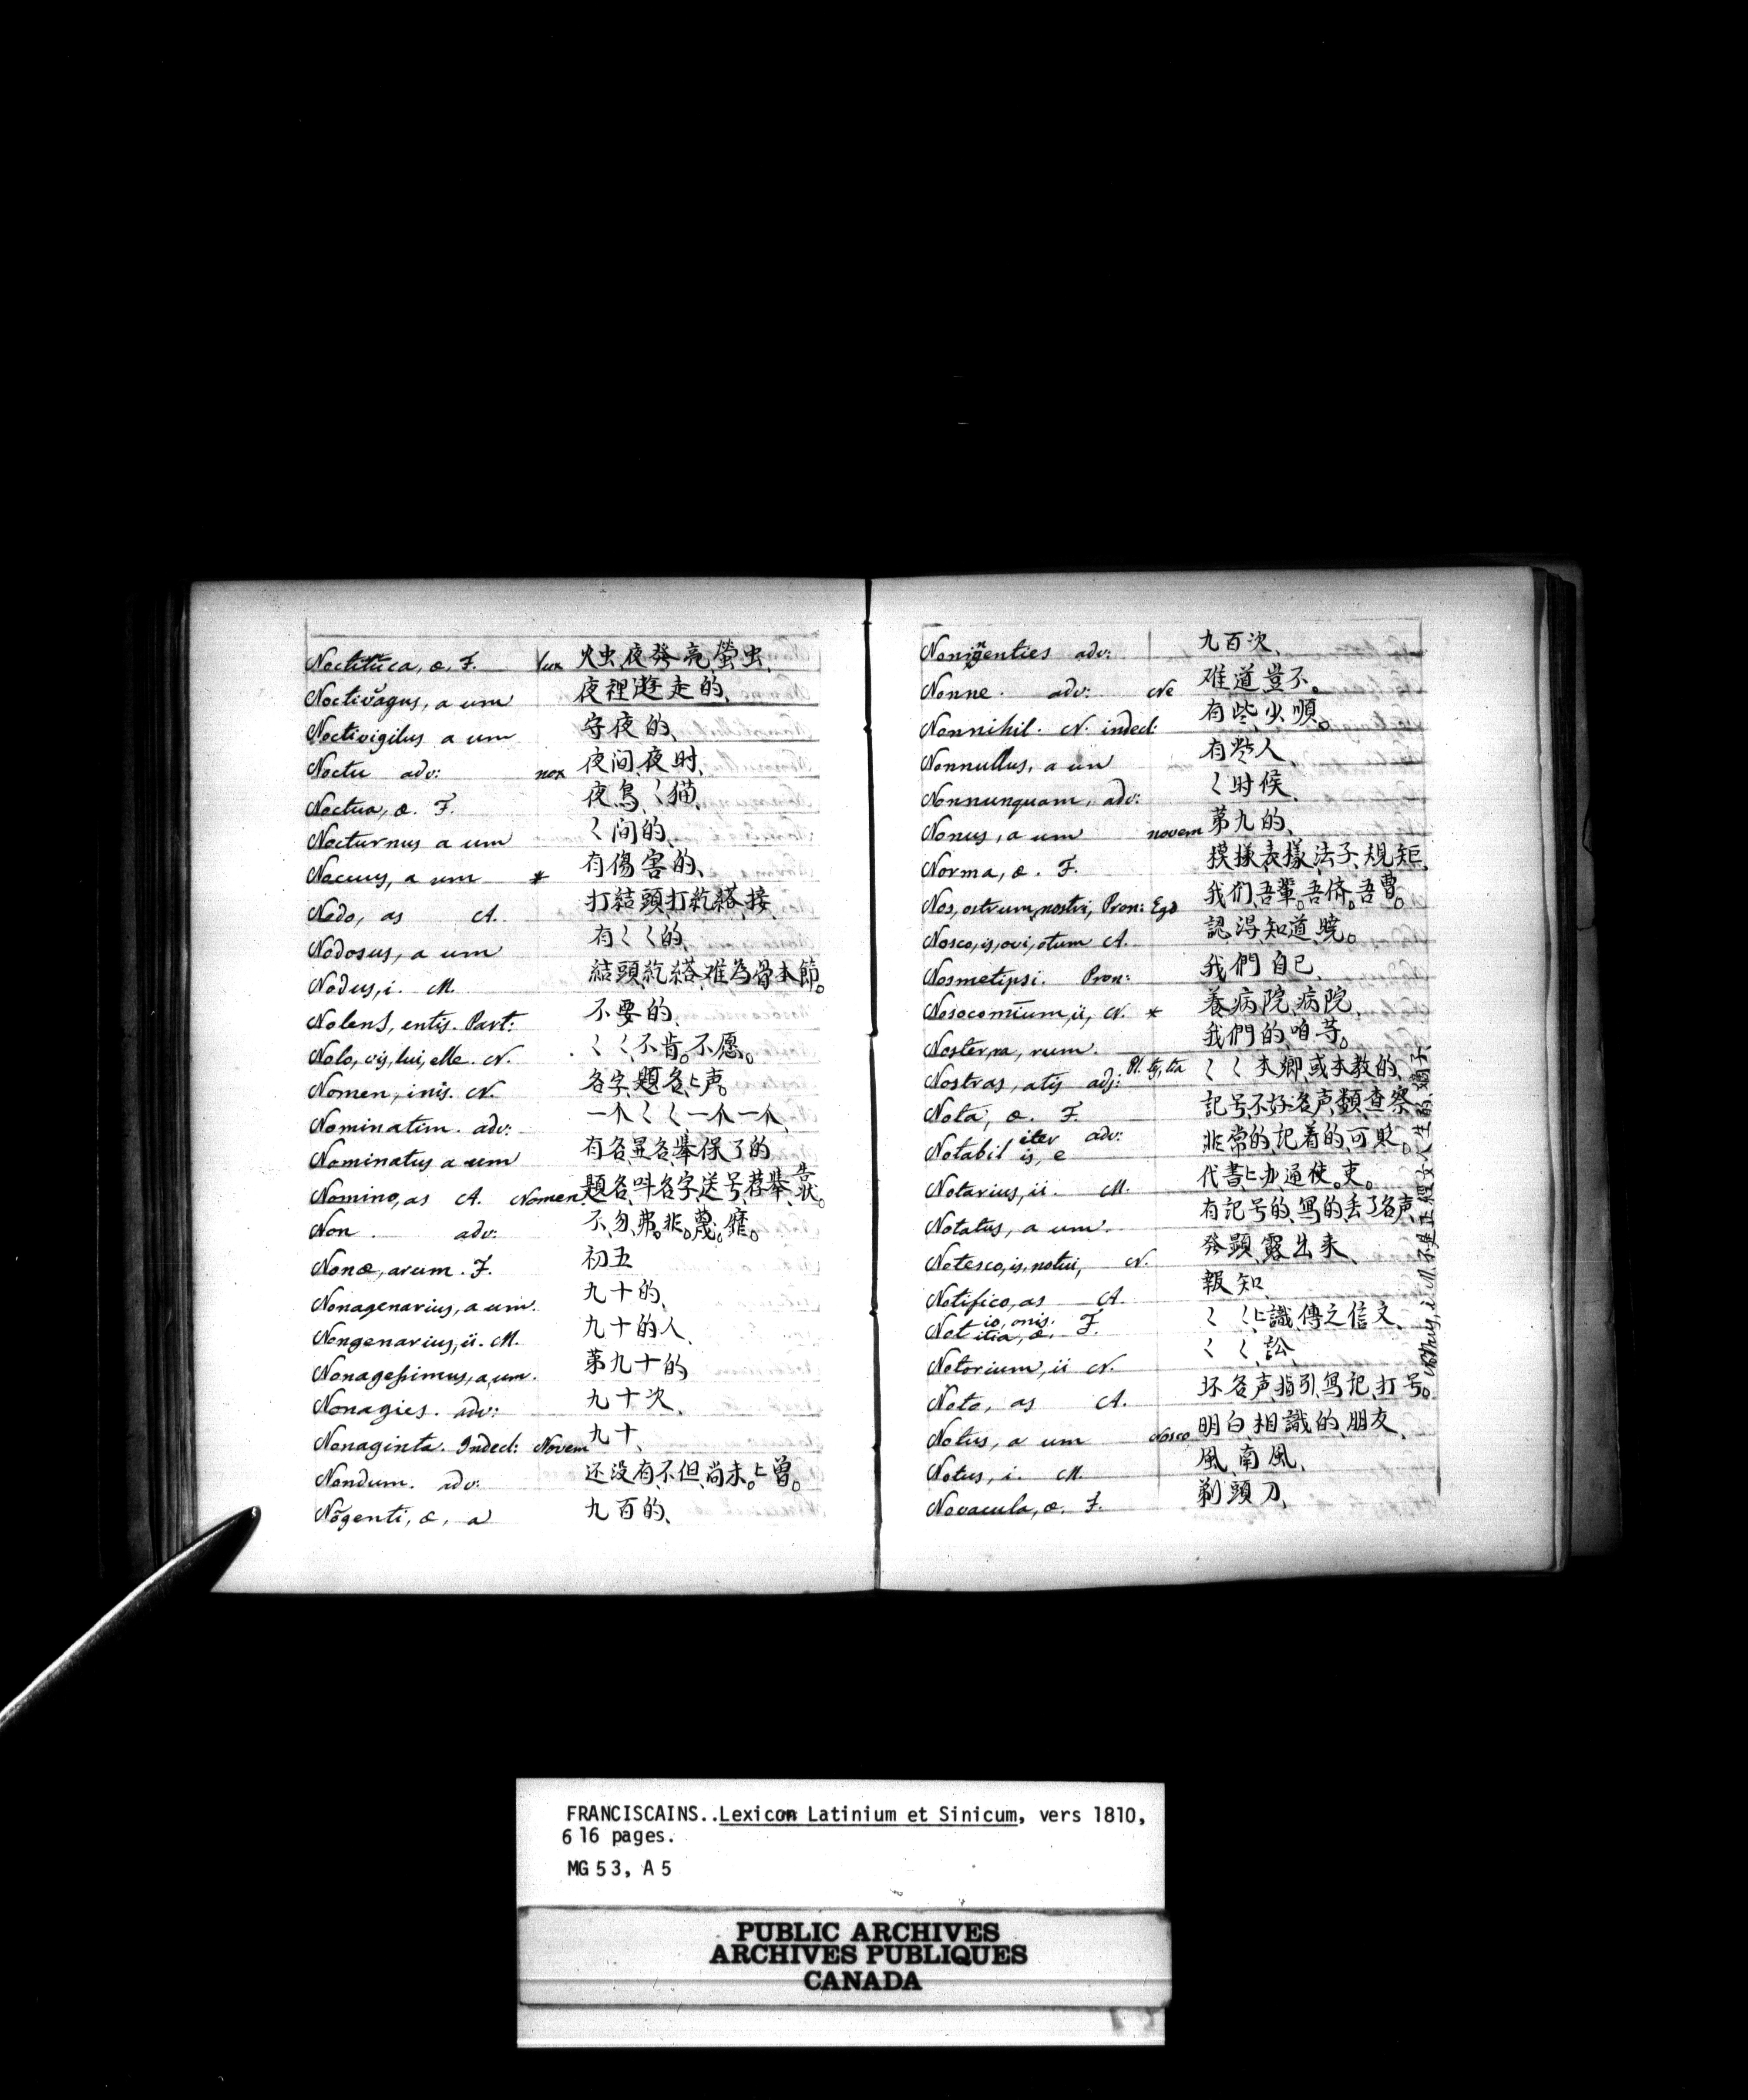 Noctiluca, æ. F. lux 火虫、夜發亮、螢虫、
Noctivăgus, a um 夜裡遊走的、
Noctivigilus a um 守夜的、
Noctu adv: nox 夜间、夜时、
Noctua, æ. F. 夜鳥、〻猫、
Nocturnus a um 〻间的、
Nocuus, a um * 有傷害的、
Nodo, as A. 打結頭、打紇縚、接
Nodosus, a um 有〻〻的、
Nodus, i. M. 結頭、紇縚、难為、骨、木節。
Nolens, entis. Part: 不要的、
Nolo, vis, lui, elle. N. 〻〻、不肯。不愿。
Nomen, inis. N. 名字、題名、上声。
Nominatim. adv: 一个〻〻、一个一个、
Nominatus a um 有名、显名、舉保了的
Nomino, as A. Nomen. 題名、呌名字、送号、荐舉、告狀。
Non. adv: 不、勿、弗。非。蔑。靡。
Nonæ, arum. F. 初五
Nonagenarius, a um. 九十的、
Nongenarius, ii. M. 九十的人、
Nonagesimus, a, um. 第九十的
Nonagies. adv: 九十次、
Nonaginta. Indecl: Novem 九十、
Nondum. adv: 还没有、不但、尚未。上曾。
Nōgenti, æ, a 九百的、
Noningenties adv: 九百次、
Nonne. adv: Ne 难道、豈不。
Nonnihil. N. indecl: 有些、少順。
Nonnullus, a un 有些人、
Nonnunquam, adv: 〻时候、
Nonus, a um novem 第九的、
Norma, æ. F. 摸㨾、表㨾、法子、規矩、
Nos, ostrum, nostri, Pron: Ego 我们、吾輩。吾儕。吾曹。
Nosco, is, ovi, otum A. 認淂、知道、曉。
Nosmetipsi. Pron: 我們自己、
Nosocomīum, ii, N. * 養病院、病院、
Noster, ra, rum. 我們的、咱等。
Nostras, atis adj: Pl. tes, tia 〻〻本鄉、或本教的、
Nota, æ. F. 記号、不好名声、類、查察、
Notabil iter is, e adv: 非常的、記着的、可貶。
Notarius, ii. M. 代書、上办、通使。吏。
Notatus, a um. 有記号的、寫的、丢了名声、
Notesco, is, notui, N. 發顕、露出来、
Notifico, as A. 報知、
Not io, onis. itia, æ. F. 〻〻、上識、傳之信文、
Notorium, ii N. 〻〻、訟、
Noto, as A. 坏名声、指引、寫記、打号。
Notus, a um Nosco, 明白、相識的、朋友、
Notus, i. M. 風、南風、
Novacula, æ. F. 剃頭刀、
Nothus, i. M. 不是正経女人生的、
FRANCISCAINS..Lexicon Latinium et Sinicum, vers 1810,
616 pages.
MG 53, A 5
PUBLIC ARCHIVES
ARCHIVES PUBLIQUES
CANADA